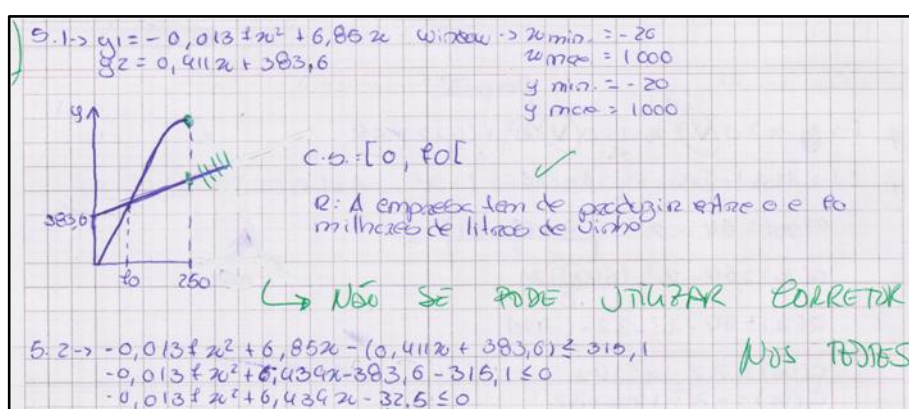 5.1-> y1 = -0,0137x² + 6,85x window -> x min. = -20
y2 = 0,411x + 383,6 x max = 1000
y min. = -20
y max = 1000
y
C.S. = [0, 70[ ✓
R: A empresa tem de produzir entre 0 e 70
milhares de litros de vinho
383,6
70 250
↳ NÃO SE PODE UTILIZAR CORRETOR
NOS TESTES
5.2-> -0,0137x² + 6,85x - (0,411x + 383,6) ≤ 315,1
-0,0137x² + 6,439x - 383,6 - 315,1 ≤ 0
-0,0137x² + 6,439x - 32,5 ≤ 0